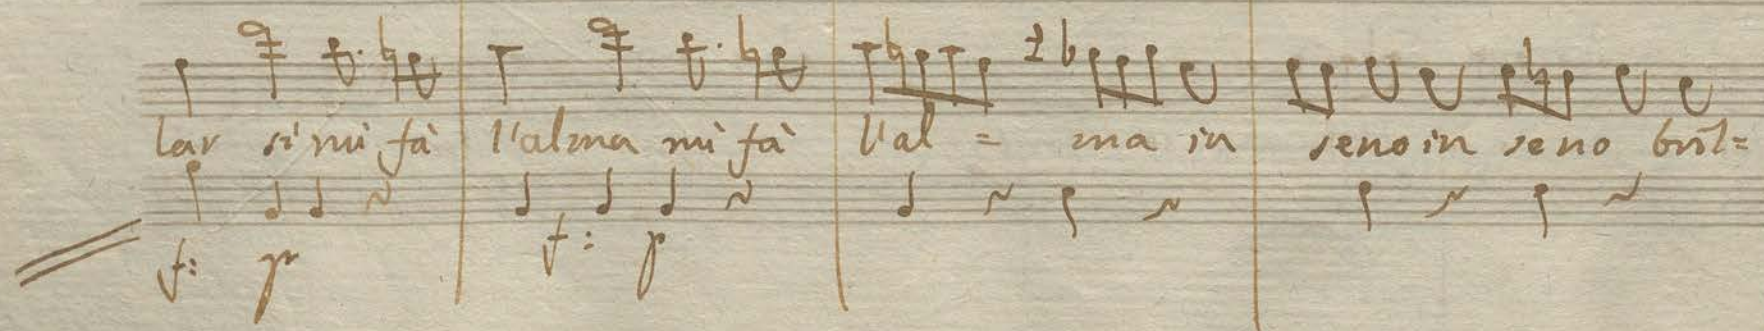 lar si mi fà l'alma mi fà l'al = ma in seno in seno bril=
f: p f: p